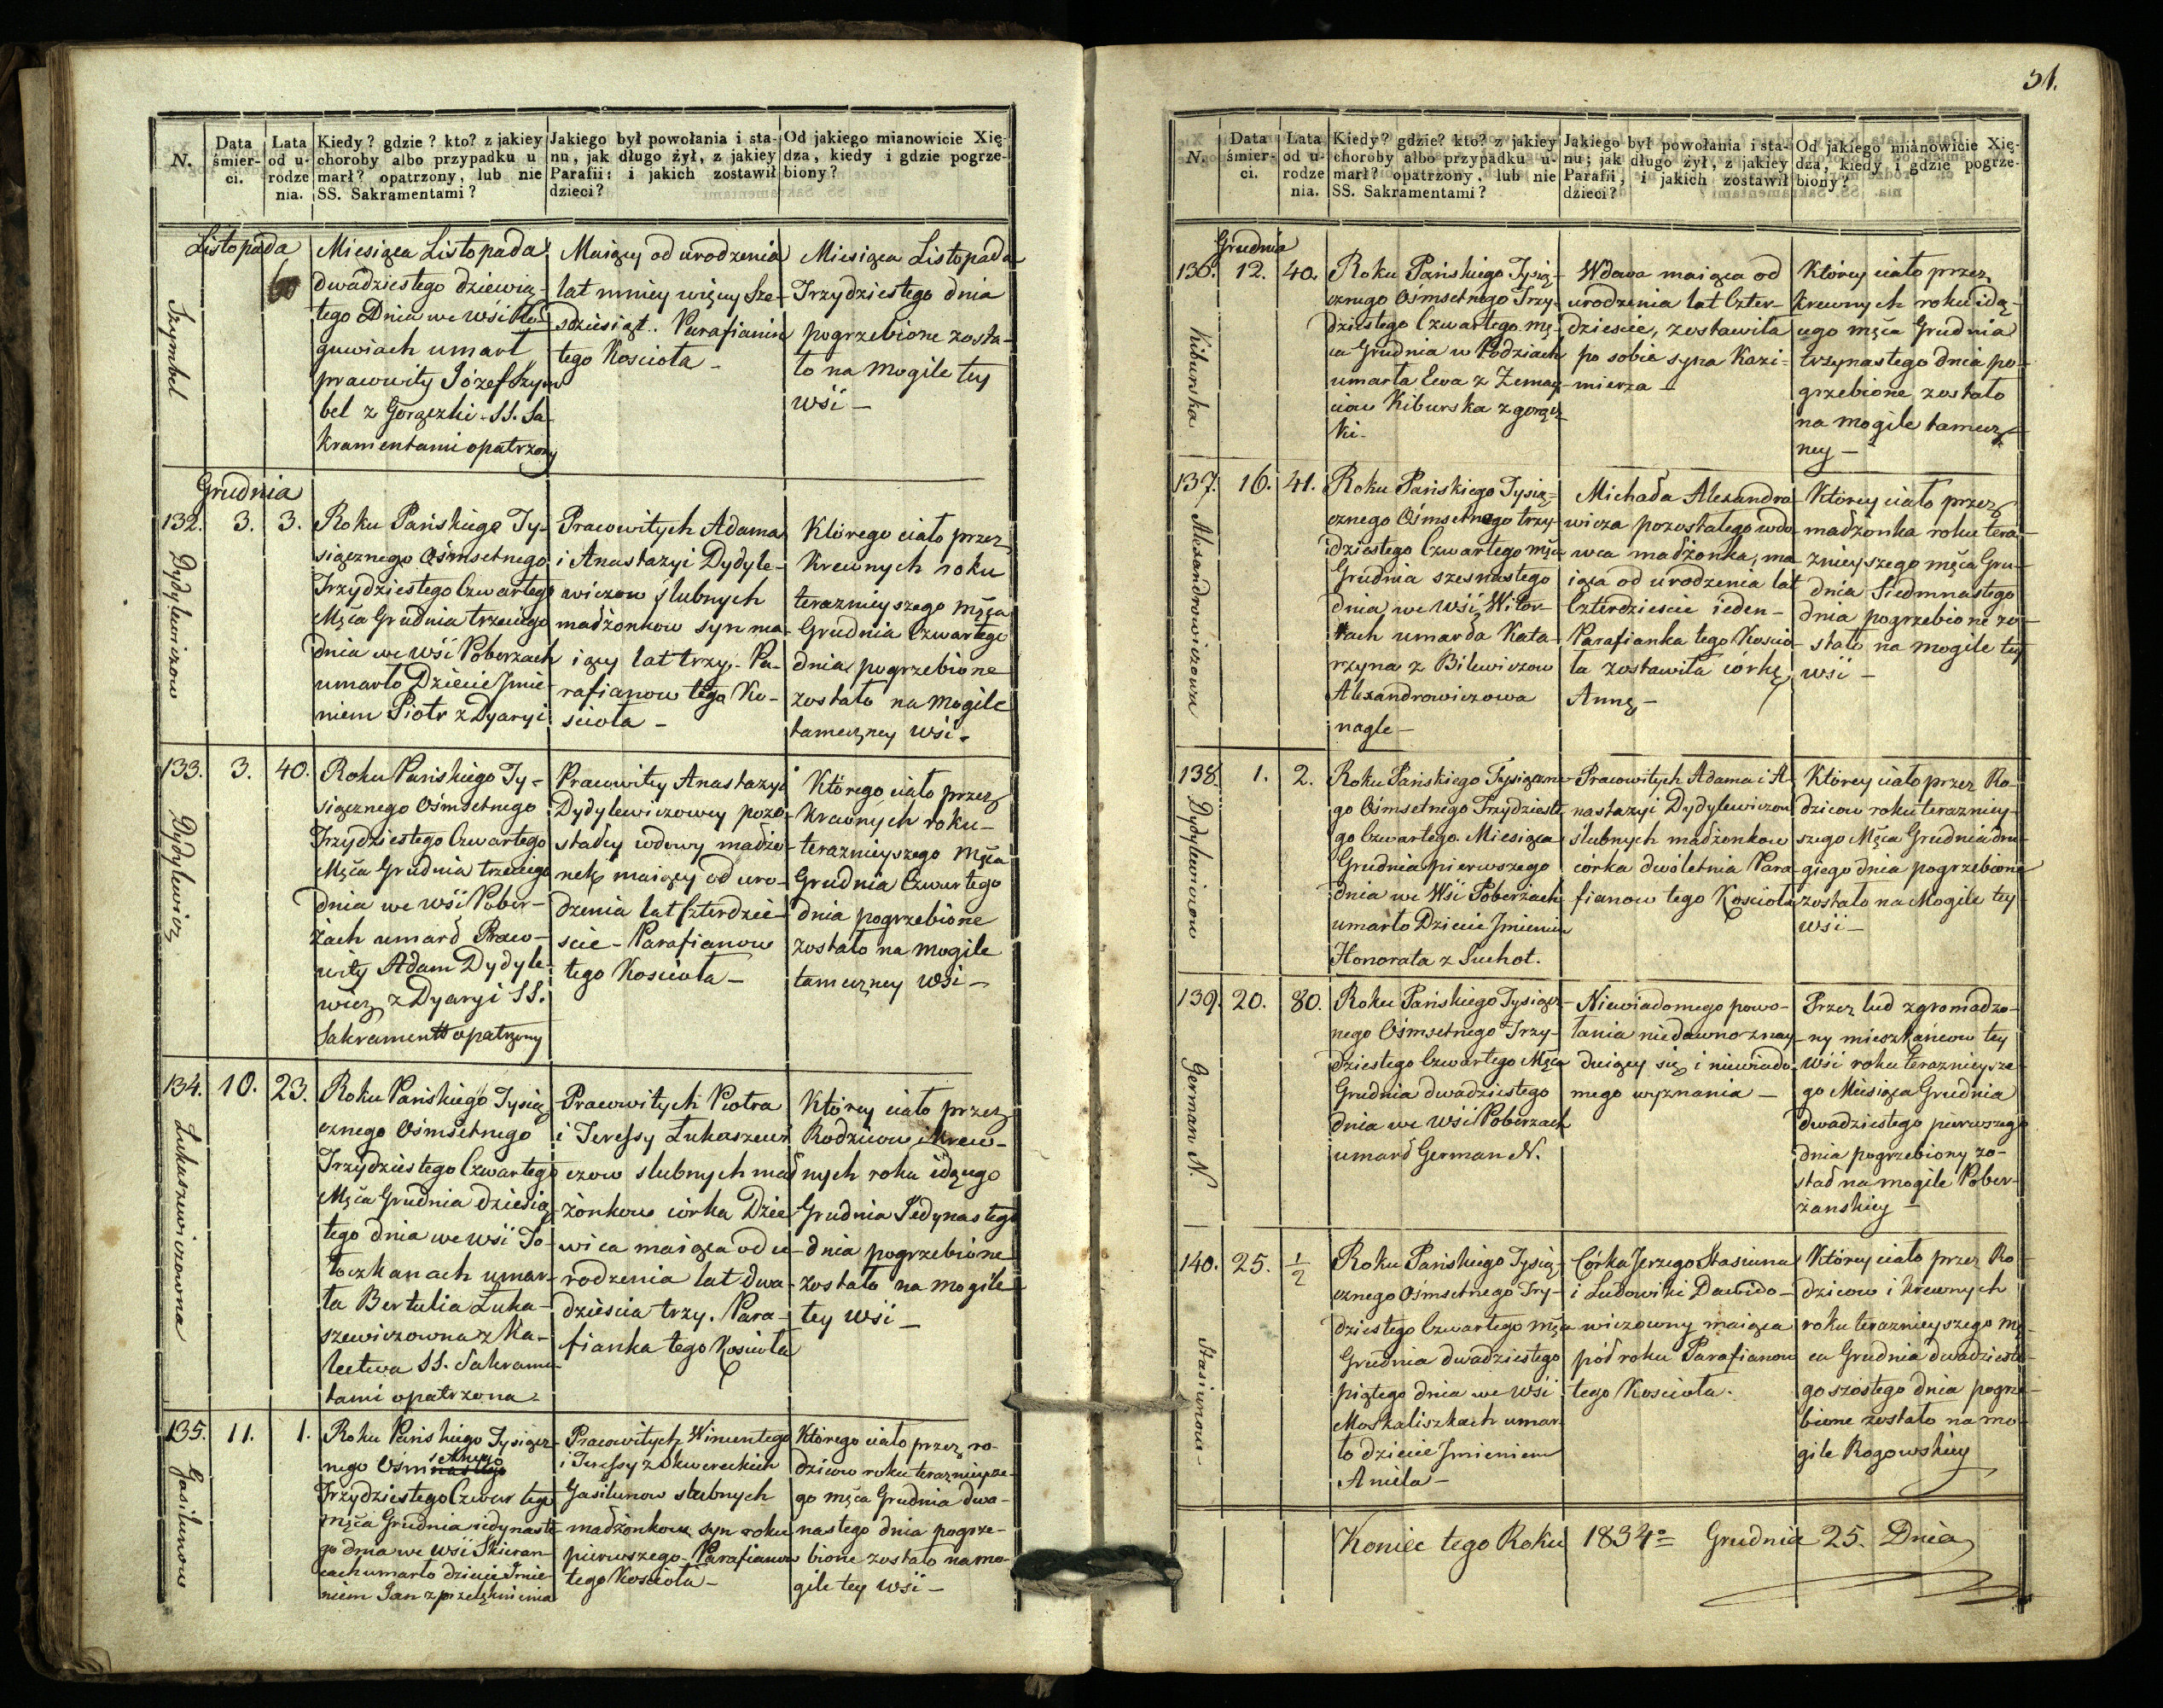 N.
Data śmierci.
Lata od urodzenia.
Kiedy? gdzie? kto? z jakiey
choroby albo przypadku u
marł? opatrzony, lub nie
SS. Sakramentami?
Jakiego był powołania i sta-
nu, jak długo żył, z jakiey
Parafii: i jakich zostawił
dzieci?
Od jakiego mianowicie Xię-
dza, kiedy i gdzie pogrze-
biony?
Listopada
60
Szymbel
Miesiąca Listopada
dwadziestego dziewią-
tego Dnia we wsi
guwiach umarł
prawowity Józef Szym
bel z Gorączki. SS. Sa-
kramentami opatrzony
Maiący od urodzenia
lat mniey więcey Sze-
śdziesiąt. Parafianin
tego Kościoła –
Miesiąca Listopada
Trzydziestego dnia
pogrzebione zosta-
ło na mogile tey
wsi –
Grudnia
132. 3. 3.
Dydylewiczow
Roku Pańskiego Ty-
siącznego Ośmsetnego
Trzydziestego Czwartego
Mśca Grudnia trzeciego
dnia we wsi Poberzach
umarło Dziecie Jmie-
niem Piotr z Dyaryi
Pracowitych Adama
i Anastazyi Dydyle-
wiczow ślubnych
małżonkow syn ma-
iący lat trzy. Pa-
rafianow tego Ko-
ścioła –
Którego ciało przez
Krewnych roku
teraznieyszego Mśca
Grudnia Czwartego
dnia pogrzebione
zostało na mogile
tameczney wsi.
133. 3. 40.
Dydylewicz
Roku Pańskiego Ty-
siącznego Ośmsetnego
Trzydziestego Czwartego
Mśca Grudnia trzeciego
dnia we wsi Pober-
żach umarł Praco-
wity Adam Dydyle-
wicz z Dyaryi SS.
Sakrament opatrzony
Pracowitey Anastazyi
Dydylewiczowey pozo-
stałey wdowy małżo-
nek maiący od uro-
dzenia lat Czterdzie-
ście – Parafianow
tego Kościoła –
Którego ciało przez
Krewnych roku
teraznieyszego Mśca
Grudnia Czwartego
dnia pogrzebione
zostało na mogile
tameczney wsi –
134. 10. 23.
Łukaszewiczowna
Roku Pańskiego Tysią
cznego Ośmsetnego
Trzydziestego Czwartego
Mśca Grudnia dziesią
tego dnia we wsi To-
łoczkanach umar-
ła Bertulia Łuka-
szewiczowna z Ka-
lectwa SS. Sakramen-
tami opatrzona.
Pracowitych Piotra
i Teressy Łukaszewi
czow slubnych mał
żonkow córka Dzie
wica maiąca od u-
rodzenia lat dwa-
dzieścia trzy. Para-
fianka tego Kościoła
Którey ciało przez
Rodzicow i krew-
nych roku idącego
Grudnia Jedynastego
dnia pogrzebione
zostało na mogile
tey wsi –
135. 11. 1.
Gasilunow
Roku Pańskiego Tysiącz-
nego Osmsetnego
Trzydziestego Czwartego
mśca Grudnia iedynaste-
go dnia we wsi Skieran-
cach umarło dziecie Imie-
niem Jan z przelęknienia
Pracowitych Wincentego
i Teressy z Skwereckich
Gasilunow slubnych
małżonkow syn roku
pierwszego. Parafianow
tego Kościoła –
Którego ciało przez ro-
dzicow roku teraznieysze-
go mśca Grudnia dwu-
nastego dnia pogrze-
bione zostało na mo-
gile tey wsi –
51.
N.
Data śmierci.
Lata od urodzenia.
Kiedy? gdzie? kto? z jakiey
choroby albo przypadku u-
marł? opatrzony, lub nie
SS. Sakramentami?
Jakiego był powołania i sta-
nu; jak długo żył, z jakiey
Parafii, i jakich zostawił
dzieci?
Od jakiego mianowicie Xię-
dza, kiedy i gdzie pogrze-
biony?
Grudnia
136. 12. 40.
Kiburska
Roku Pańskiego Tysią-
cznego Ośmsetnego Trzy-
dziestego Czwartego mś-
ca Grudnia w Łodziach
umarła Ewa z Zemay-
ciow Kiburska z gorącz
ki.
Wdowa maiąca od
urodzenia lat Czter-
dzieście, zostawiła
po sobie syna Kazi-
mierza –
Którey ciało przez
krewnych roku idą-
cego mśca Grudnia
trzynastego dnia po-
grzebione zostało
na mogile tamecz-
ney –
137. 16. 41.
Alexandrowiczowna
Roku Pańskiego Tysią-
cznego Ośmsetnego trzy-
dziestego Czwartego mśca
Grudnia szesnastego
dnia we wsi Witor-
tach umarła Kata-
rzyna z Bilewiczow
Alexandrowiczowa
nagle –
Michała Alexandro-
wicza pozostałego wdo-
wca małżonka, ma-
iąca od urodzenia lat
Czterdzieście ieden –
Parafianka tego Kościo-
ła zostawiła córkę
Annę –
Którey ciało przez
małżonka roku tera-
znieyszego mśca Gru-
dnia Siedmnastego
dnia pogrzebione zo-
stało na mogile tey
wsi –
138. 1. 2.
Dydylewiczow
Roku Pańskiego Tysiączne-
go Ośmsetnego Trzydzieste-
go Czwartego Miesiąca
Grudnia pierwszego
dnia we Wsi Poberżach
umarło Dziecie Jmieniem
Honorata z Suchot.
Pracowitych Adama i A-
nastazyi Dydylewiczow
slubnych małżonkow
córka dwóletnia Para-
fianow tego Kościoła
Którey ciało przez Ro-
dzicow roku terazniey-
szego Mśca Grudnia dru-
giego dnia pogrzebione
zostało na Mogile tey
wsi –
139. 20. 80.
German N.
Roku Pańskiego Tysiącz-
nego Ośmsetnego Trzy-
dziestego Czwartego Mśca
Grudnia dwadziestego
dnia we wsi Poberzach
umarł German N.
Niewiadomego powo-
łania niedawno znay-
duiący się i niewiado-
mego wyznania –
Przez lud zgromadzo-
ny mieszkańcow tey
wsi roku teraznieysze-
go Miesiąca Grudnia
dwadziestego pierwszego
dnia pogrzebiony zo-
stał na mogile Pober-
żanskiey –
140. 25. 1/2
Stasiunow
Roku Pańskiego Tysią-
cznego Ośmsetnego Try-
dziestego Czwartego mśca
Grudnia dwadziestego
piątego dnia we wsi
Moskaliszkach umar-
ło dziecie Jmieniem
Aniela –
Córka Jerzego Stasiuna
i Ludowiki Dawido-
wiczowny maiąca
pół roku Parafianow
tego Kościoła.
Którey ciało przez Ro-
dzicow i krewnych
roku teraznieyszego mś-
ca Grudnia dwadzieste-
go szóstego dnia pogrze-
bione zostało na mo-
gile Rogowskiey
Koniec tego Roku 1834º = Grudnia 25. Dnia